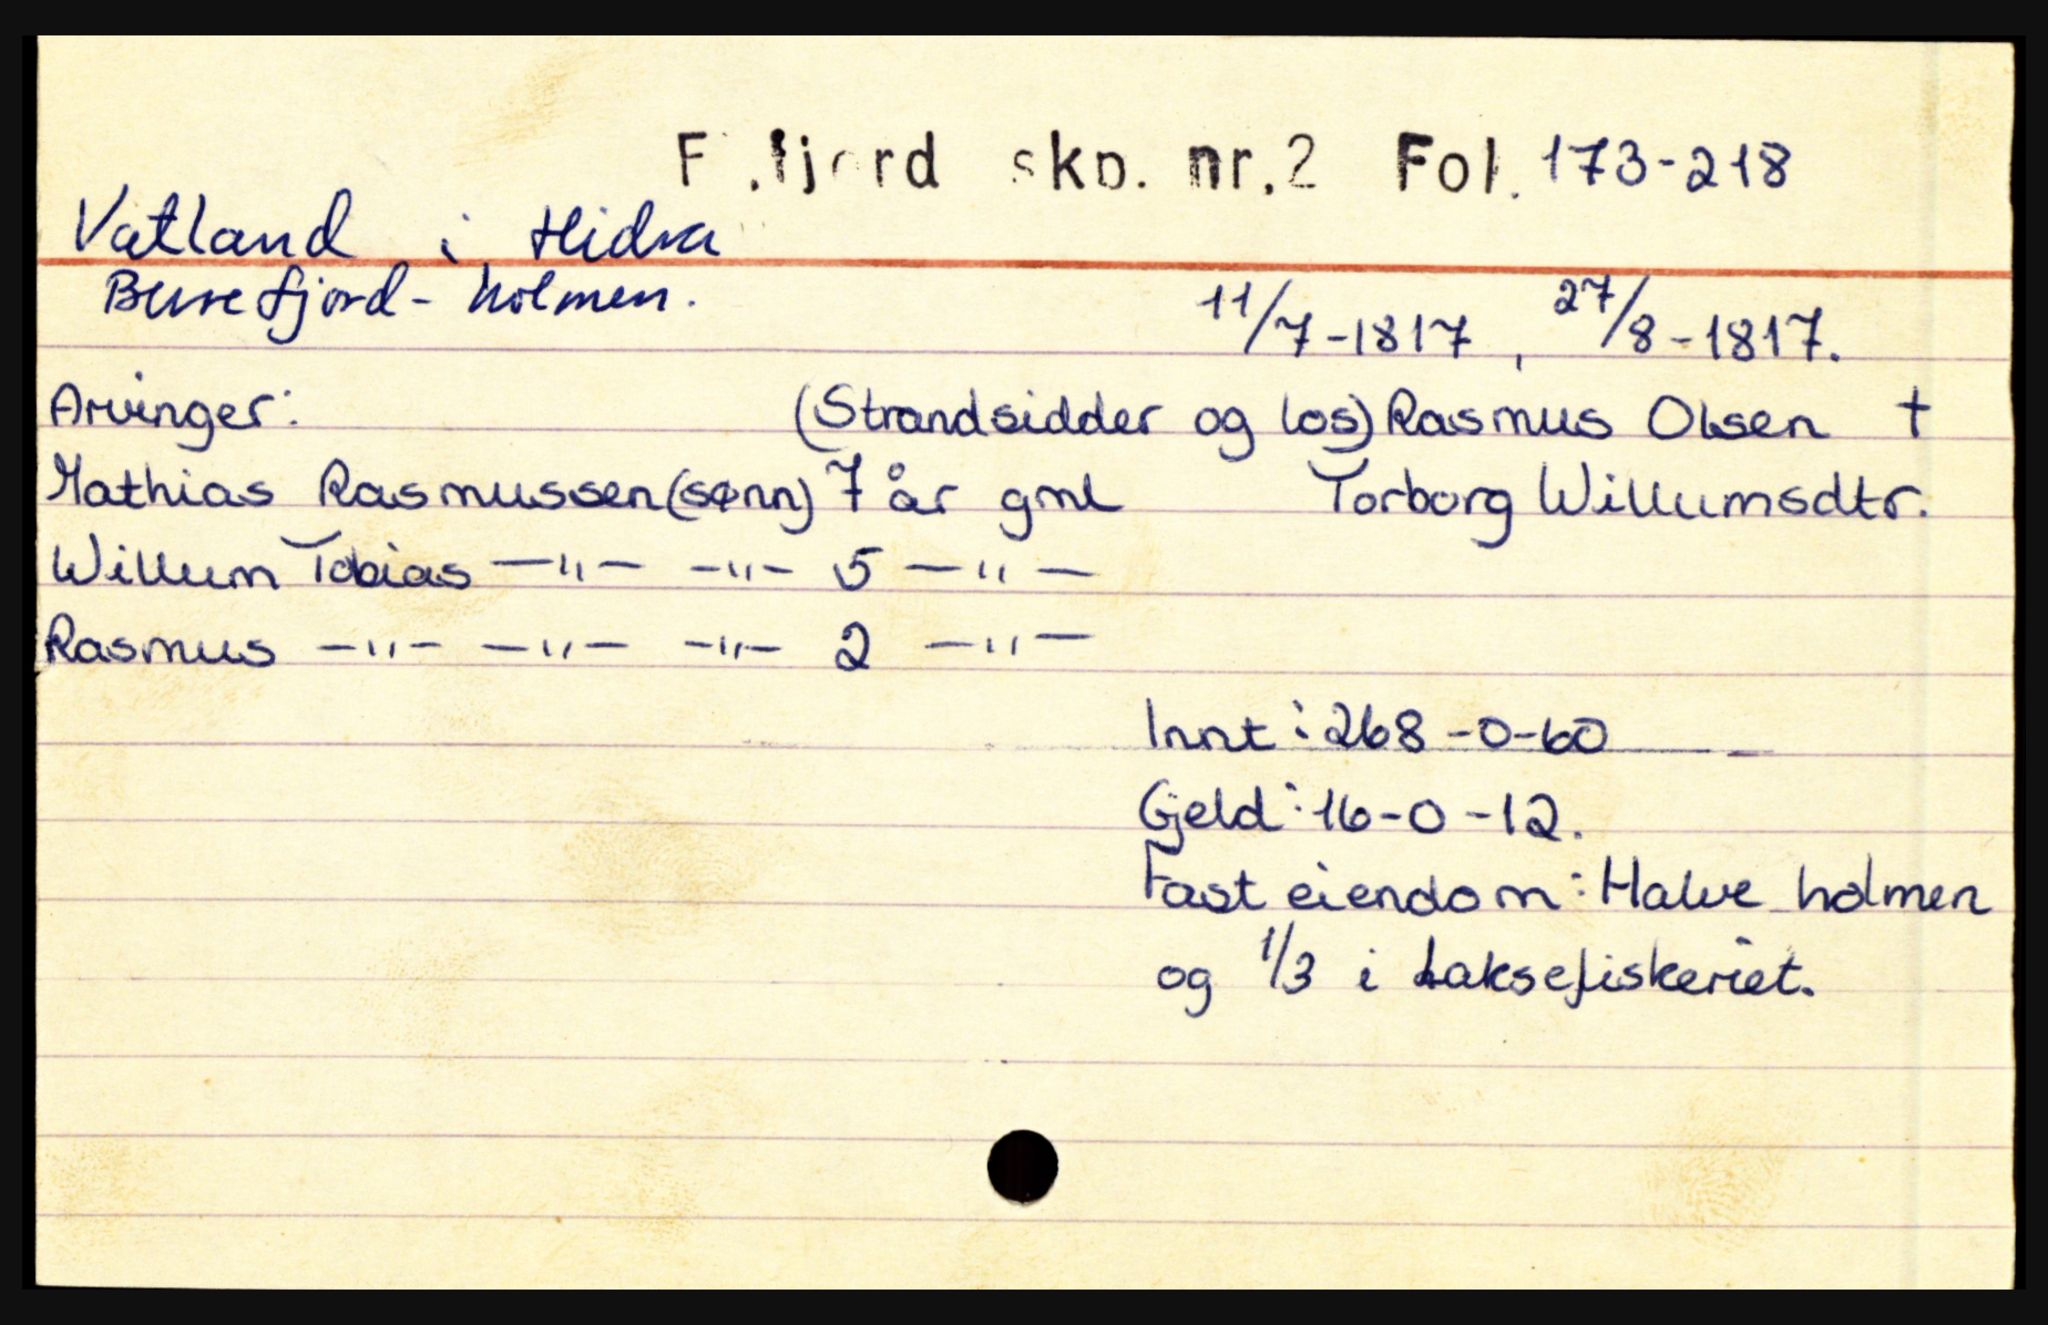 F.fjord skp. nr.2 Fol. 173-218
Vatland i Hidra
Burefjord-holmen.
11/7-1817, 27/8-1817.
Arvinger: (Strandsidder og los) Rasmus Olsen †
Mathias Rasmussen (sønn) 7 år gml Torborg Willumsdtr.
Willum Tobias —"— —"— 5 —"—
Rasmus —"— —"— —"— 2 —"—
Innt: 268-0-60
Gjeld: 16-0-12.
Fast eiendom: Halve holmen
og 1/3 i Laksefiskeriet.